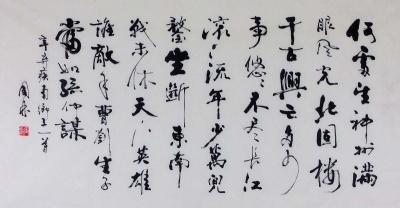 何处望神州满
眼风光北固楼
千古興亡多少
事悠悠不尽長江
滚滚流年少萬兜
鍪坐断東南
战未休天下英雄
誰敵手曹劉生子
當如孫仲謀
辛弃疾南鄉子一首